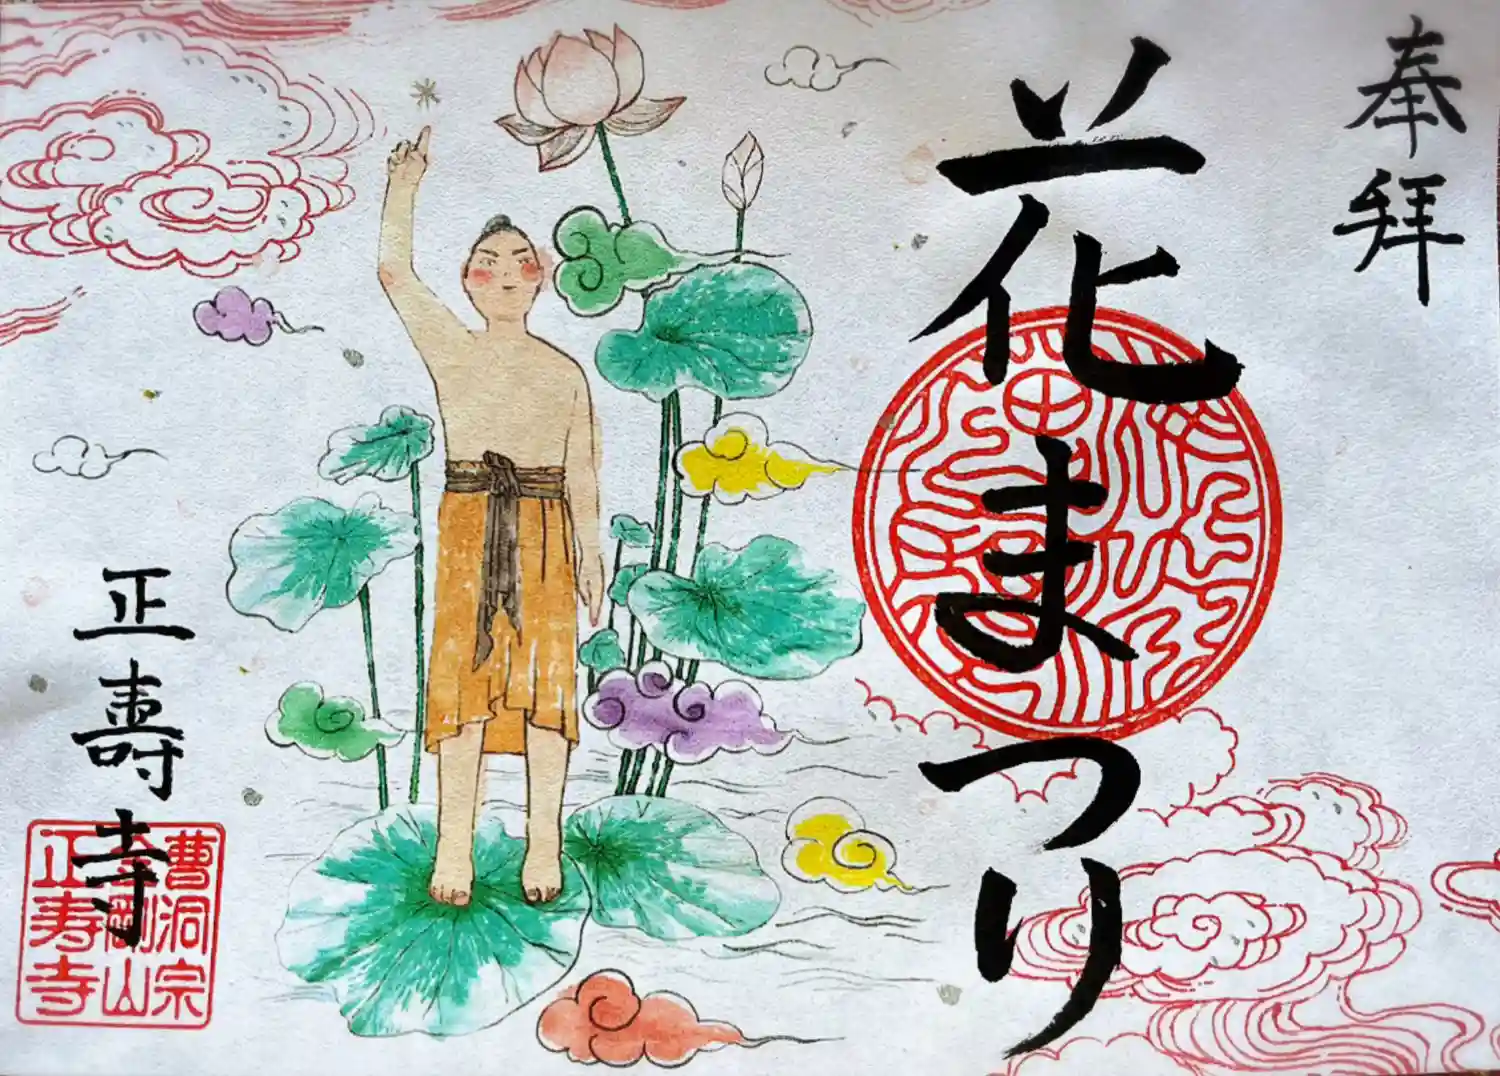 奉拝
花まつり
正壽寺
曹洞宗
金剛山
正寿寺